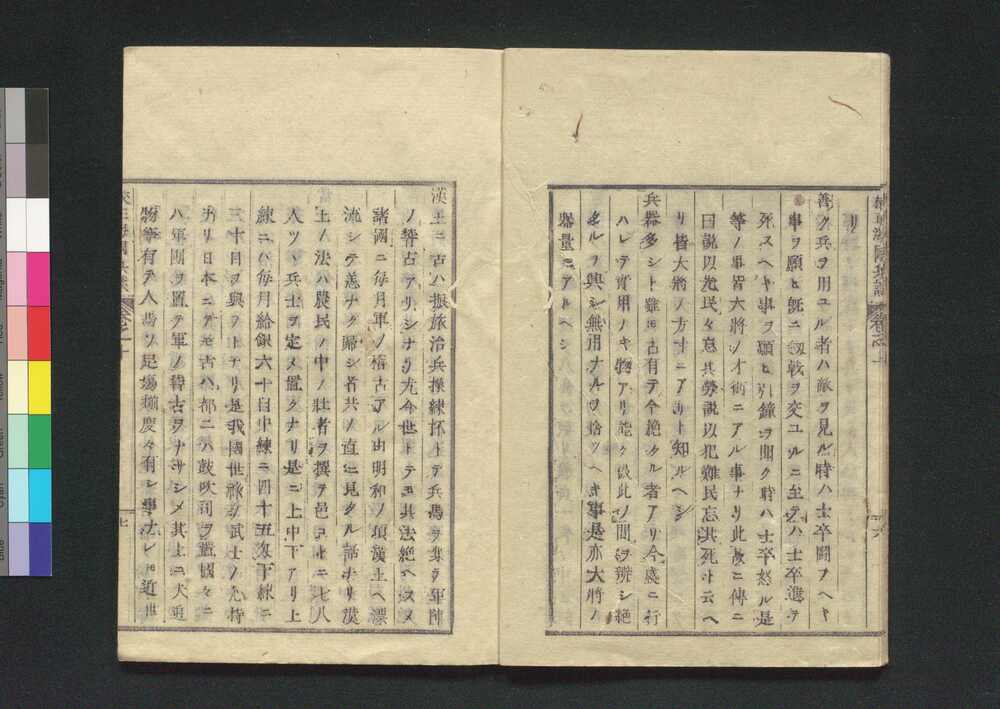 リ
善ク兵ヲ用ユル者ハ敵ヲ見ル時ハ士卒鬪ヲヘキ
事ヲ願ヒ既ニ劔戟ヲ交ユルニ至テハ士卒進テ
死スヘキ事ヲ願ヒ引鐘ヲ聞ク時ハ士卒怒ル是
等ノ事皆大將ノ才術ニアル事ナリ此故ニ傳ニ
曰說以先民々忘其勞說以犯難民忘其死ト云ヘ
リ皆大將ノ方寸ニアリト知ルヘシ
兵器多シト雖モ古有テ今絶タル者アリ今盛ニ行
ハレテ實用ノキ物アリ能ク彼此ノ間ヲ辨シ絶
タルヲ興シ無用ナルヲ捨ツヘキ事是亦大將ノ
器量ニアルヘシ
漢土ニ古ハ振旅治兵操練抔トテ兵馬ヲ集テ軍陣
ノ稽古アリシナリ尤今世トテモ其法絶ヘスメ
諸國ニ毎月軍ノ稽古アル由明和ノ頃漢土ヘ漂
流シテ恙ナク歸シ者共ノ直ニ見タル話ナリ漢
土ノ法ハ農民ノ中ノ壯者ヲ撰テ邑コトニ七八
人ツヽ兵士ヲ定メ置クナリ是ニ上中下アリ上
練ニハ毎月給銀六十目中練ニ四十五匁下練ニ
三十目ヲ與フトナリ是我國世祿ノ武士ノ尤恃
リ日本ニテモ古ハ都ニハ鼓吹司ヲ置國々ニ
ハ軍團ヲ置テ軍ノ稽古ヲナサシメ其上ニ犬追
物等有テ人馬ノ足場
有シ事ナレ𪜈近世